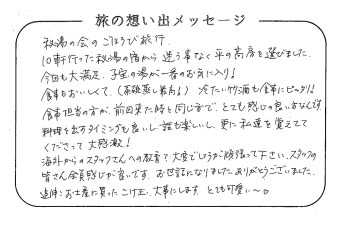 旅の想い出メッセージ
秘湯の会のごほうび旅行。
10軒行った秘湯の宿から迷う事なく平の高房を選びました。
今回も大満足、子宝の湯が一番のお気に入り!
食事もおいしくて、(茶碗蒸し最高!) 冷たい竹酒も食事にピッタリ!
食事担当の方が、前回来た時と同じ方で、とても感じの良い方なんです
料理を出すタイミングも良いし、話も楽しいし、更に私達を覚えてて
くださって 大感激!
海外からのスタッフさんへの教育で大変でしょうが頑張って下さい。スタッフの
皆さん全員感じが良いです。お世話になりました。ありがとうございました。
追伸:お土産に買ったこけ玉、大事にします。とても可愛い〜♡